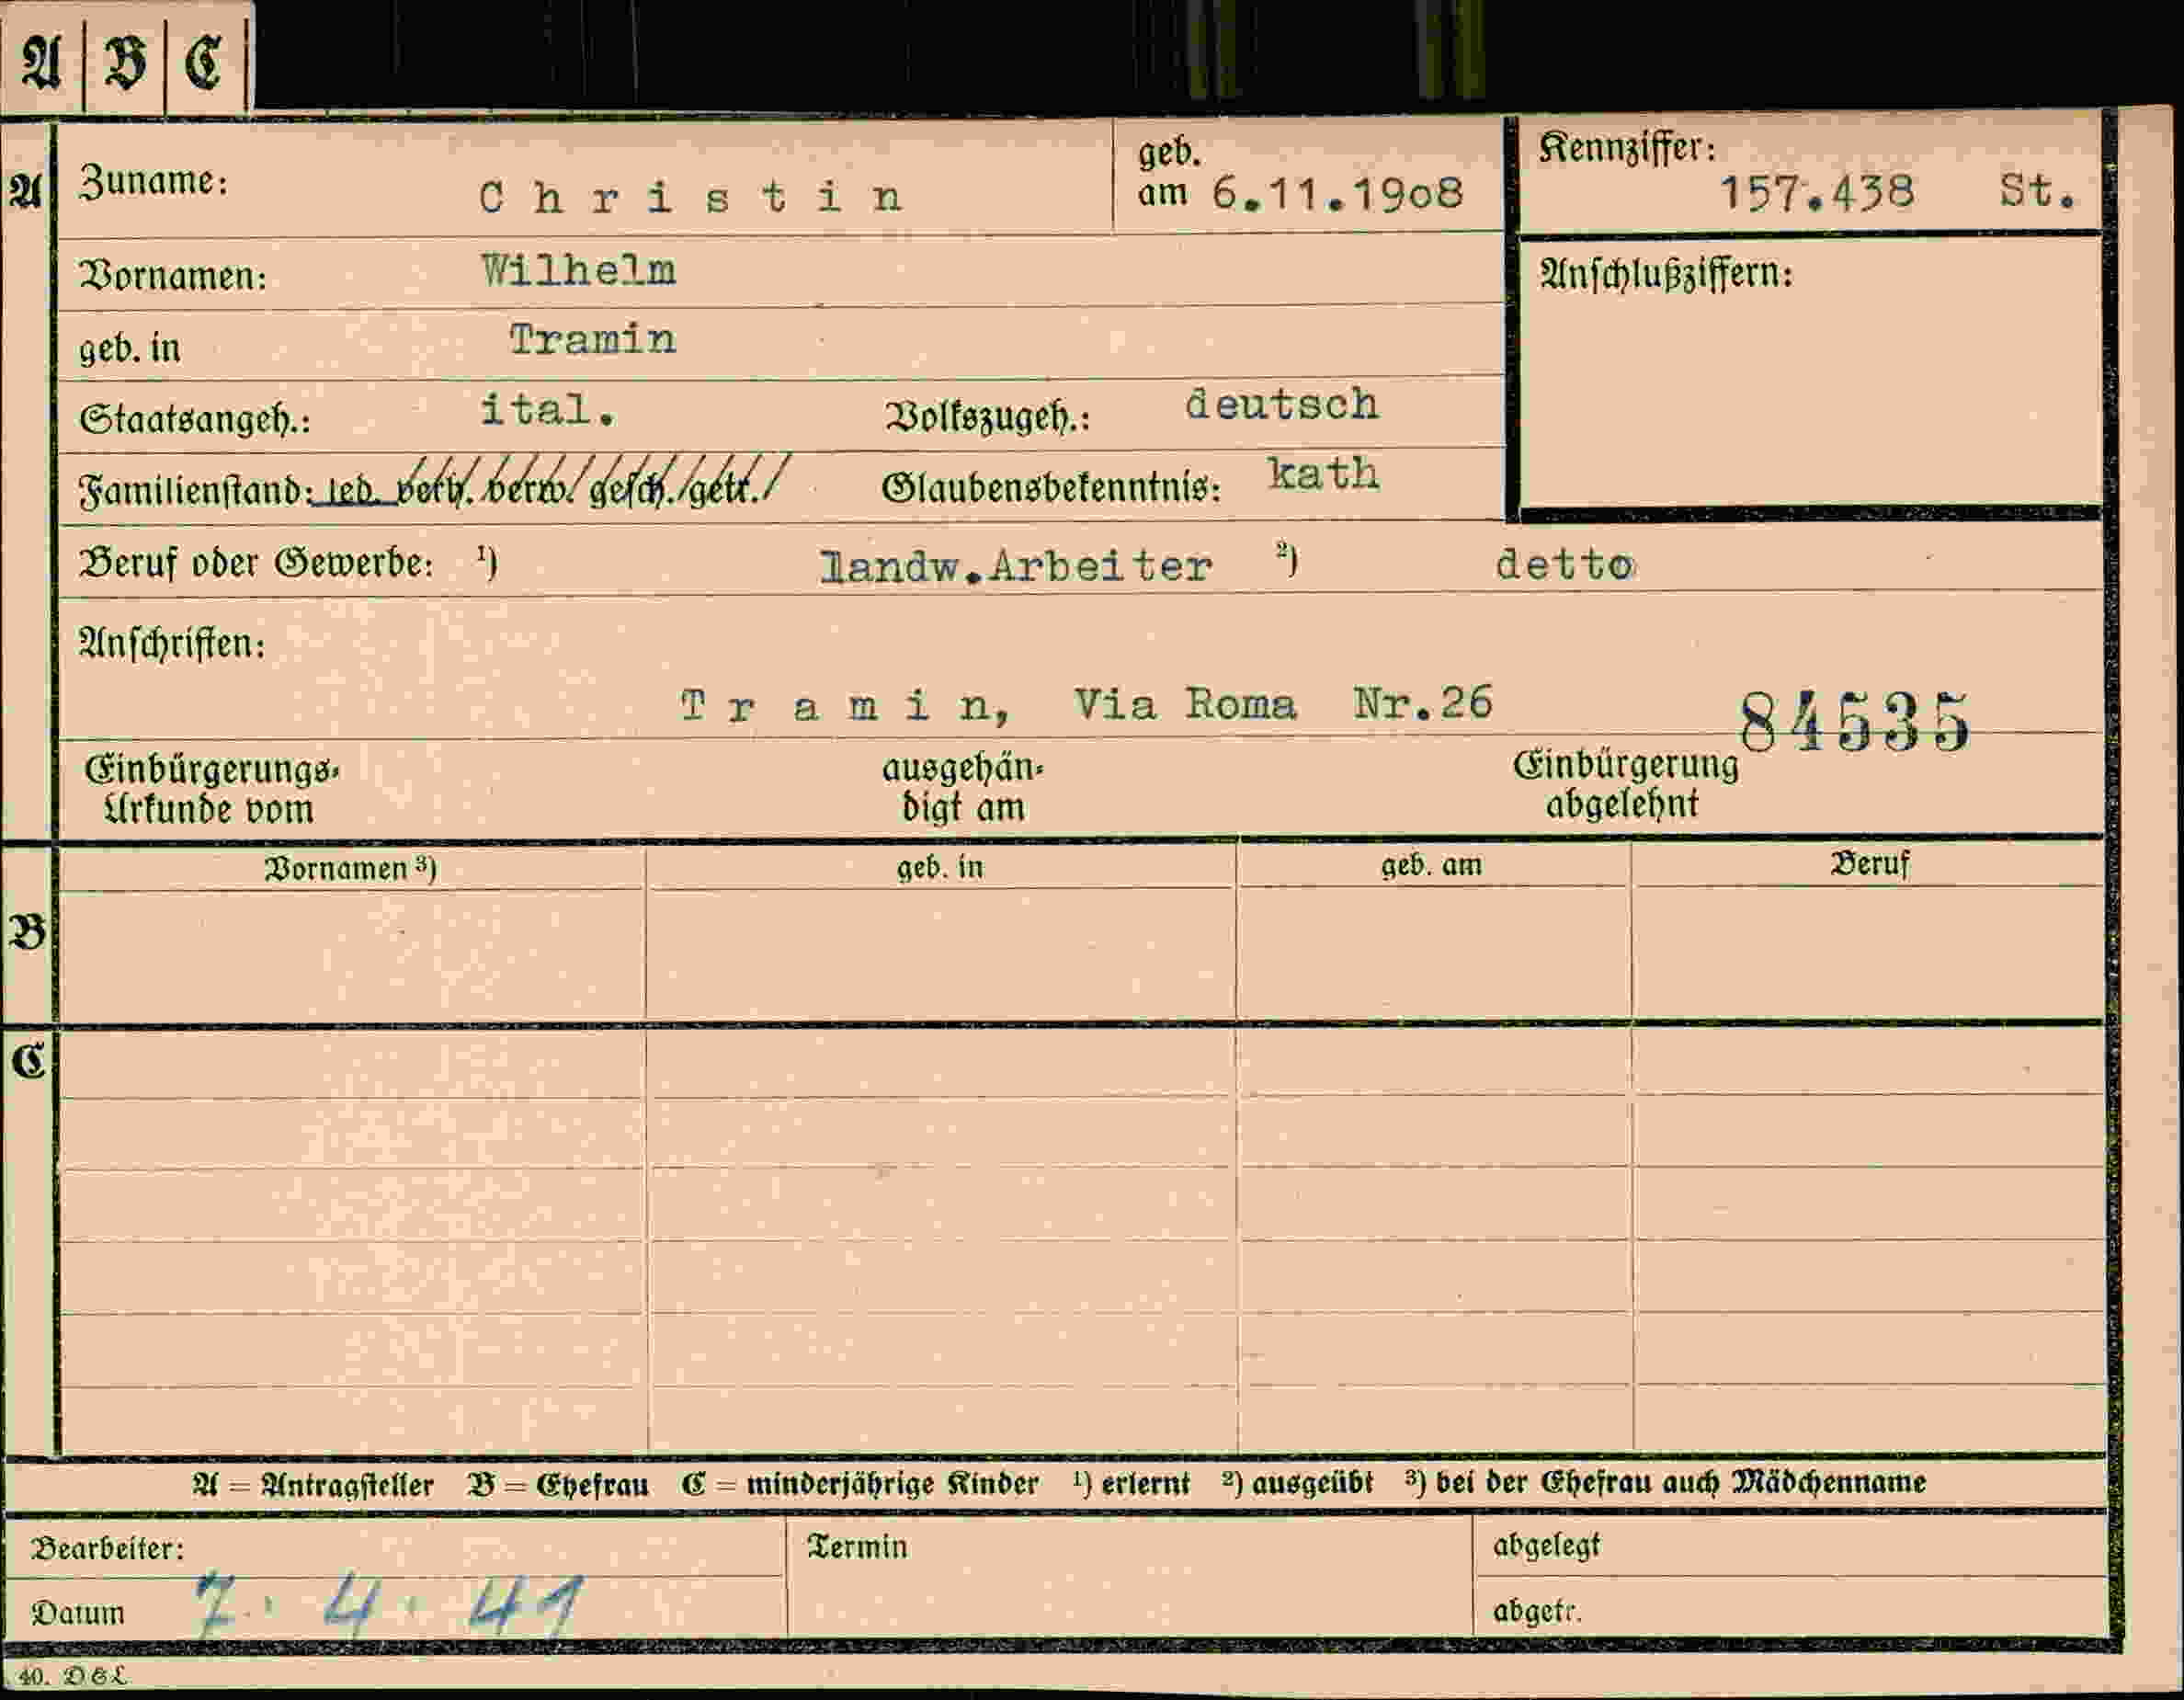 A | B | C |
A Zuname: Christin geb. am 6.11.19o8 Kennziffer: 157.438 St.
Vornamen: Wilhelm Anschlußziffern:
geb. in Tramin
Staatsangeh.: ital. Volkszugeh.: deutsch
Familienstand: led. verh. verw. gesch. getr. Glaubensbekenntnis: kath
Beruf oder Gewerbe: ¹) landw.Arbeiter ²) detto
Anschriften:
Tramin, Via Roma Nr.26 84535
Einbürgerungs- ausgehän- Einbürgerung
Urkunde vom digt am abgelehnt
Vornamen ³) geb. in geb. am Beruf
B
C
A = Antragsteller B = Ehefrau C = minderjährige Kinder ¹) erlernt ²) ausgeübt ³) bei der Ehefrau auch Mädchenname
Bearbeiter: Termin abgelegt
Datum 7. 4. 41 abgetr.
40. DGL